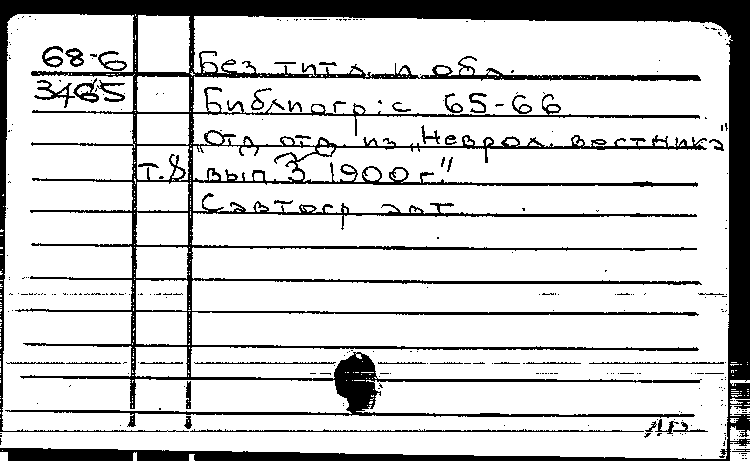 68-6 Без титл. и обл.
3465 Библиогр: с 65-66
„Отд. отд. из „Неврол. вестника"
т. 8 вып. 3 1900 г."
С автогр. авт.